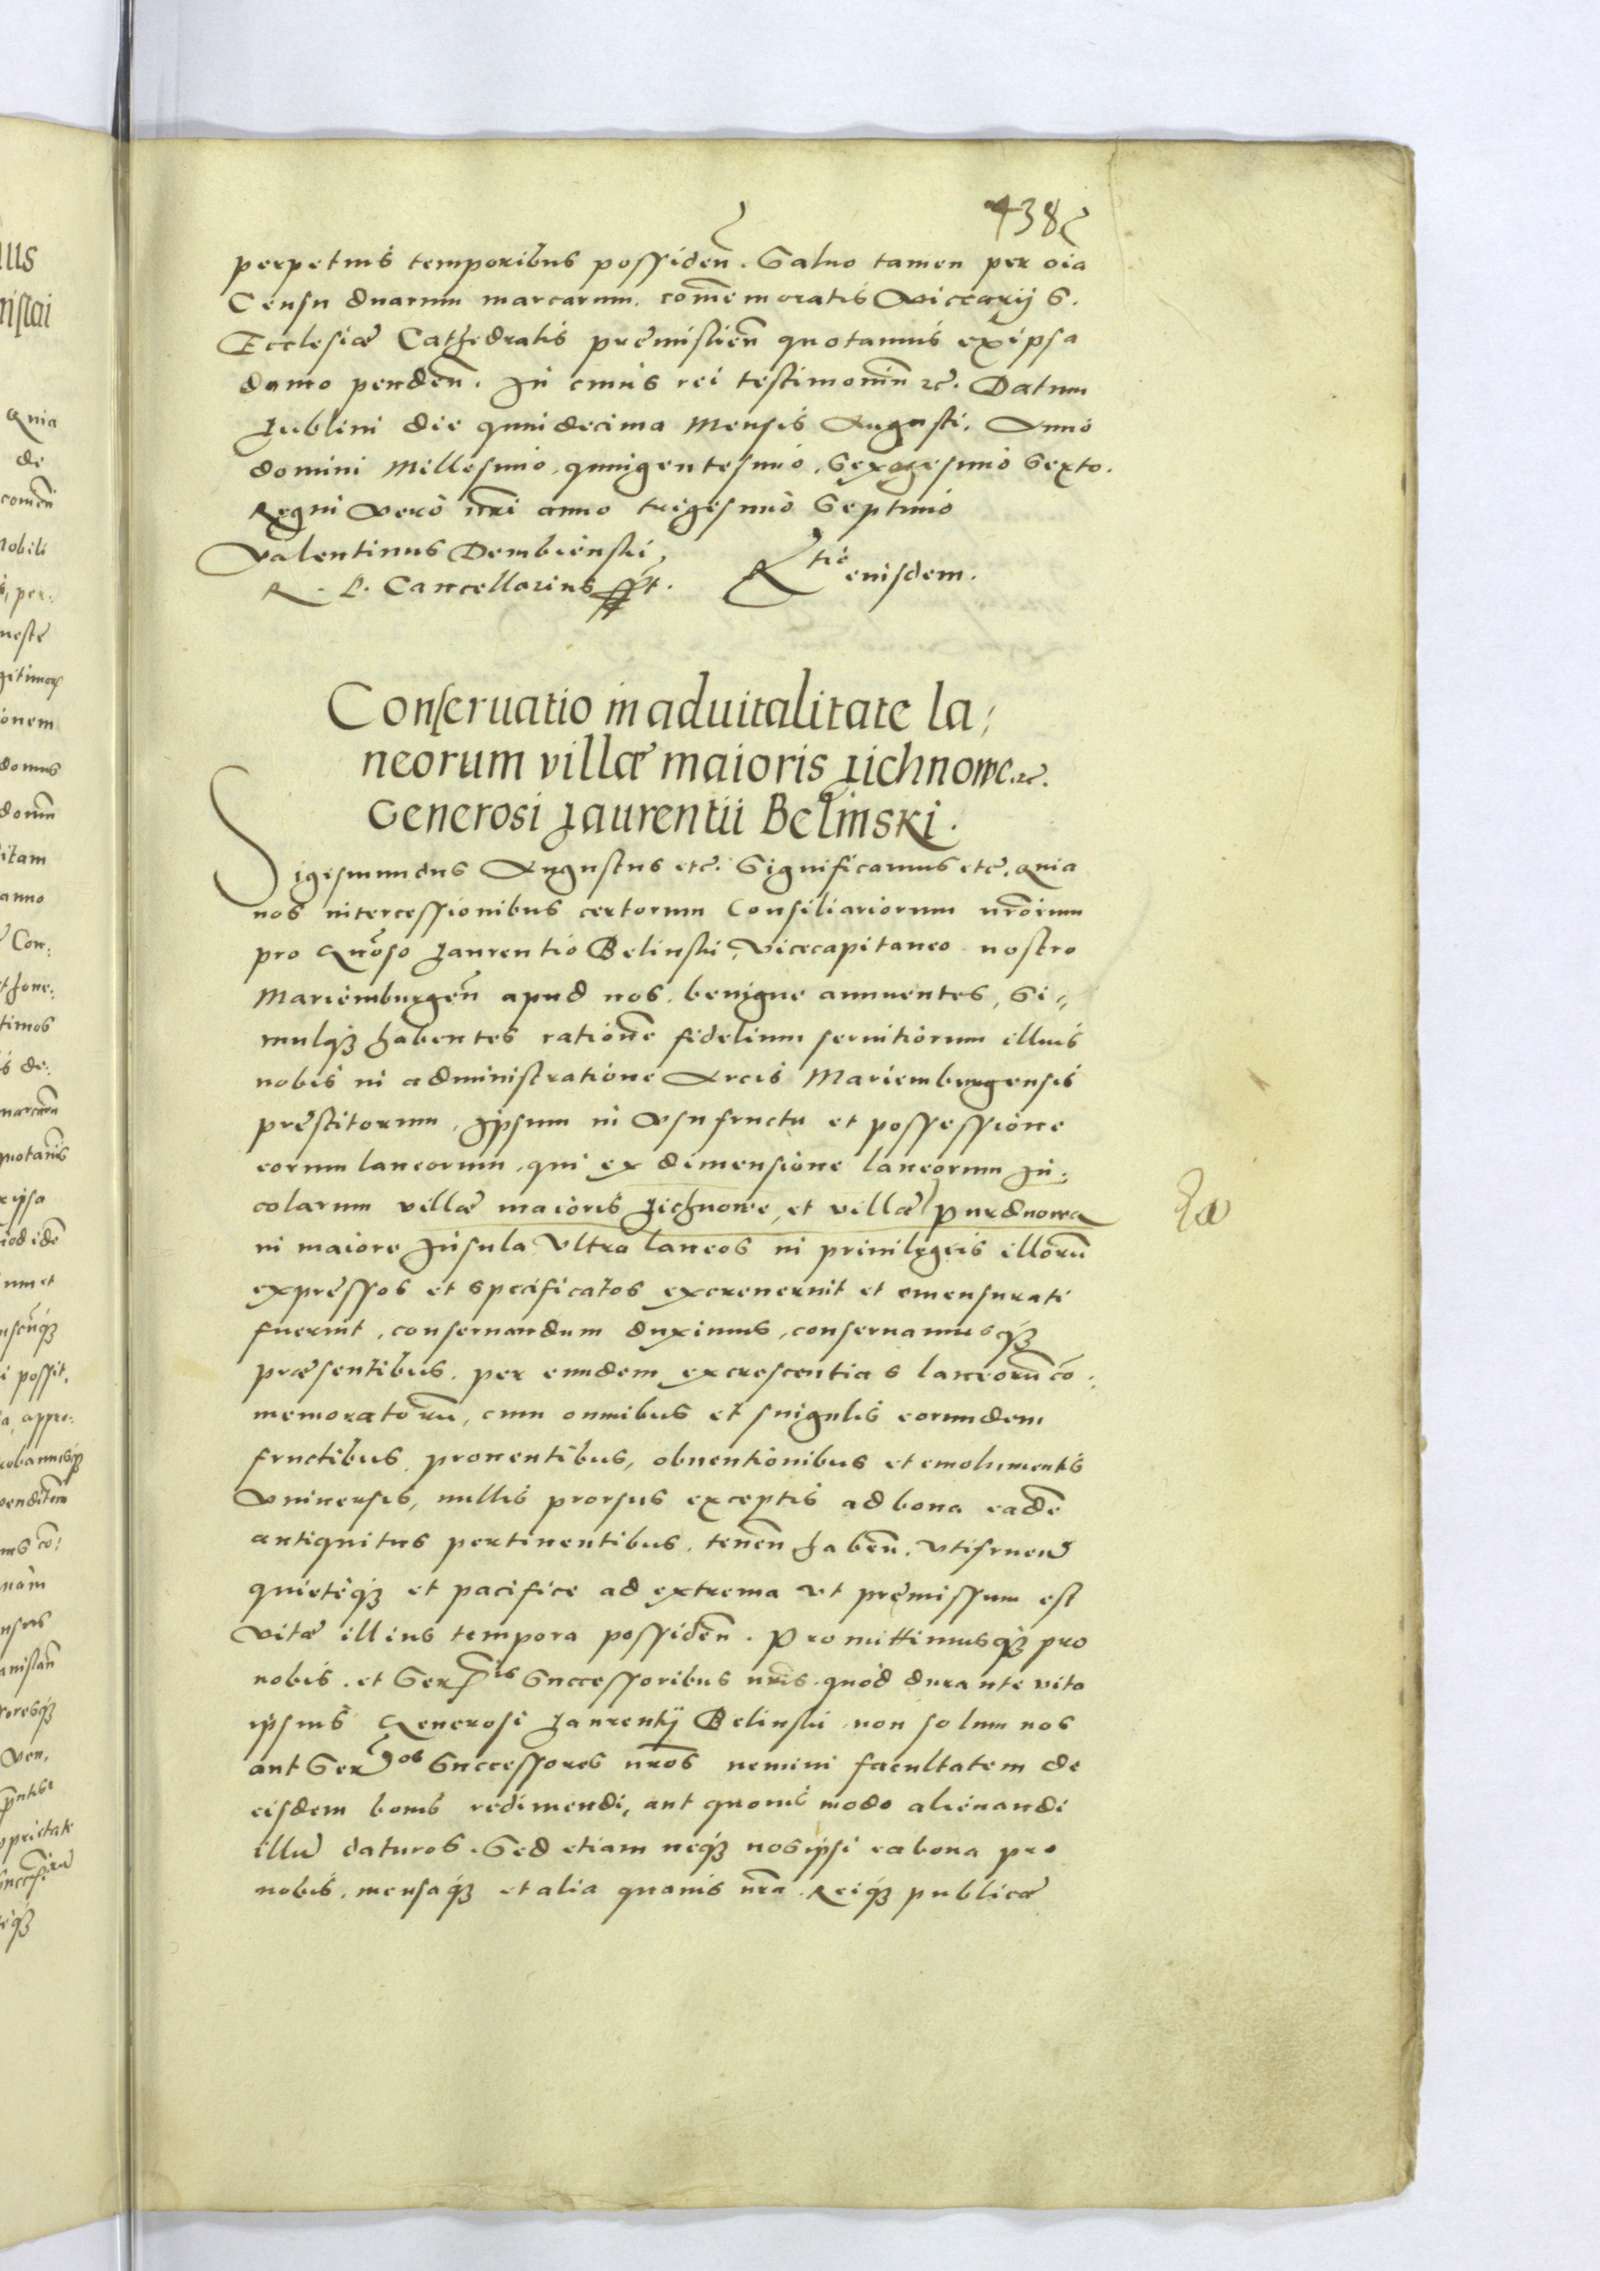 438
perpetuis temporibus possideñ. Saluo tamen per oĩa
Censu duarum marcarum. com̃emoratis Vicarijs
Ecclesiæ Cathedralis premislieñ quotannis ex ipsa
domo pendeñ. In cuius rei testimoniũ etc. Datum
Lublini die quindecima Mensis Augusti. Anno
domini Millesimo, quingentesimo, Sexagesimo Sexto.
Regni vero nr̃i anno trigesimo Septimo
Valentinus Dembienski,
R. P. Cancellarius sst.
Rtio eiusdem.
Conseruatio in aduitalitate la,
neorum villæ maioris Lichnowe etc.
Generosi Laurentii Belinski.
Sigismundus Augustus etc. Significamus etc. Quia
nos intercessionibus certorum Consiliariorum nr̃orum
pro Gñoso Laurentio Belinski, Vicecapitaneo nostro
Mariemburgeñ apud nos. benigne annuentes, Si,,
mulq3 habentes rationẽ fidelium seruitiorum illius
nobis in administratione Arcis Mariemburgensis
prestitorum, Ipsum in Vsufructu et possessione
eorum laneorum, qui ex dimensione laneorum In:
colarum villæ maioris Lichnowe, et villæ Purdnowa
in maiore Insula Vltra laneos in priuilegiis illorũ
expressos et specificatos excreuerint et emensurati
fuerint, conseruandum duximus, conseruamusq3
præsentibus. per eundem excrescentias laneorũ cõ:
memoratorũ, cum omnibus et singulis eorundem
fructibus, prouentibus, obuentionibus et emolumentis
Vniuersis, nullis prorsus exceptis ad bona eadẽ
antiquitus pertinentibus. teneñ habeñ. Vtifruend
quieteq3 et pacifice ad extrema vt premissum est
Vitæ illius tempora possideñ. Promittimusq3 pro
nobis. et Sermis Successoribus nr̃is. quod durante vita
ipsius Generosi Laurentij Belinski non solum nos
aut Sermos Successores nr̃os nemini facultatem de
eisdem bonis redimendi, aut quouis modo alienandi
illũ daturos. Sed etiam neq3 nos ipsi ea bona pro
nobis. mensaq3 et alia quauis nr̃a. Reiq3 publicæ